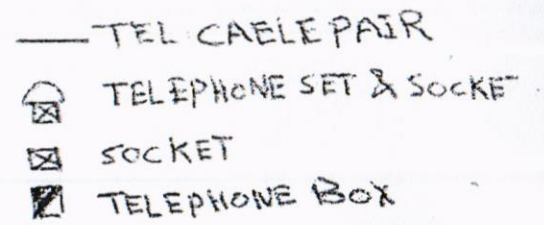 TEL CAELE PAIR
TELEPHONE SET & SOCKET
SOCKET
TELEPHONE BOX